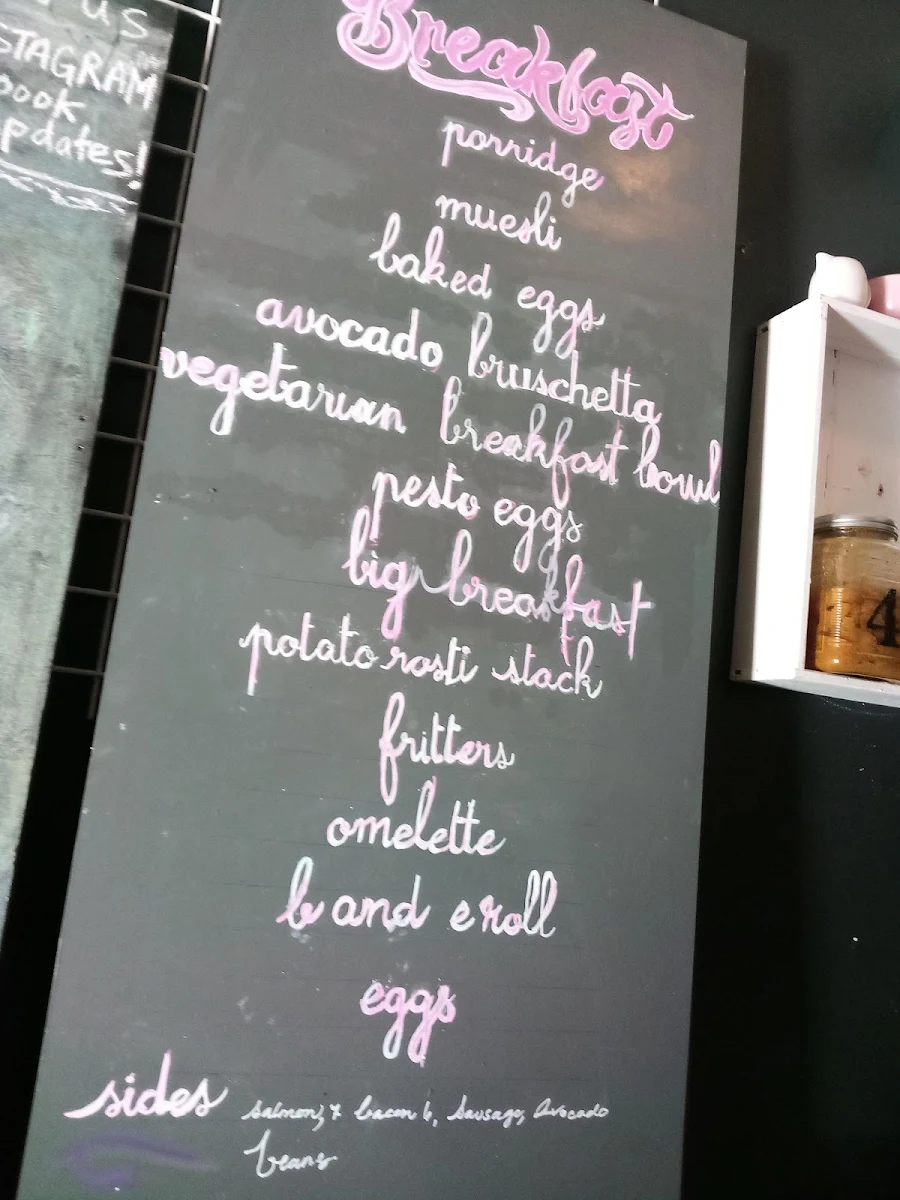 us
STAGRAM
book
pdates!
Breakfast
porridge
muesli
baked eggs
avocado bruschetta
vegetarian breakfast bowl
pesto eggs
big breakfast
potato rosti stack
fritters
omelette
b and e roll
eggs
sides salmon, 7 bacon 6, sausage, avocado
beans
4